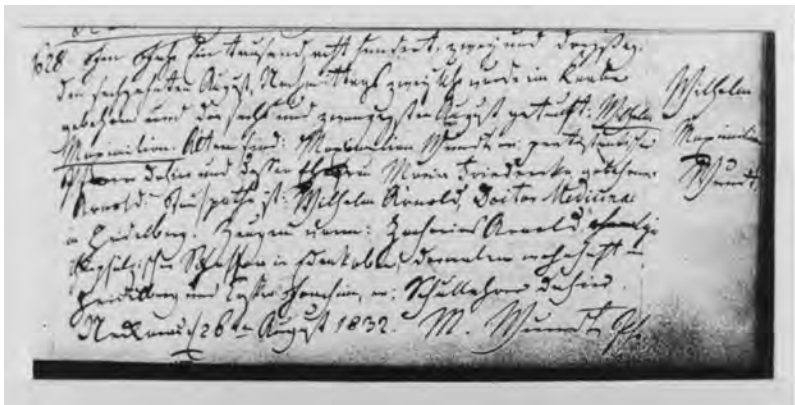 628 Im Jahr Ein tausend acht hundert, zwei und dreyßig,
den sechzehnten August, Nachmittags zwey Uhr wurde ein Knabe
gebohren und den sechs und zwanzigsten August getauft: Wilhelm
Maximilian. Eltern sind: Maximilian Wundt ev. protestantischer
Pfarrer dahier und dessen Ehefrau Maria Friedericke gebohrene
Arnold. Taufpathe ist: Wilhelm Arnold, Doctor Medicinae
in Heidelberg. Zeugen waren: Zacharias Arnold
in Edenkoben, dermalen wohnhaft in
Heidelberg und Joachim, ev. Schullehrer dahier.
Neckarau 26ten August 1832. M. Wundt Pf.
Wilhelm
Maximilian
Wundt.